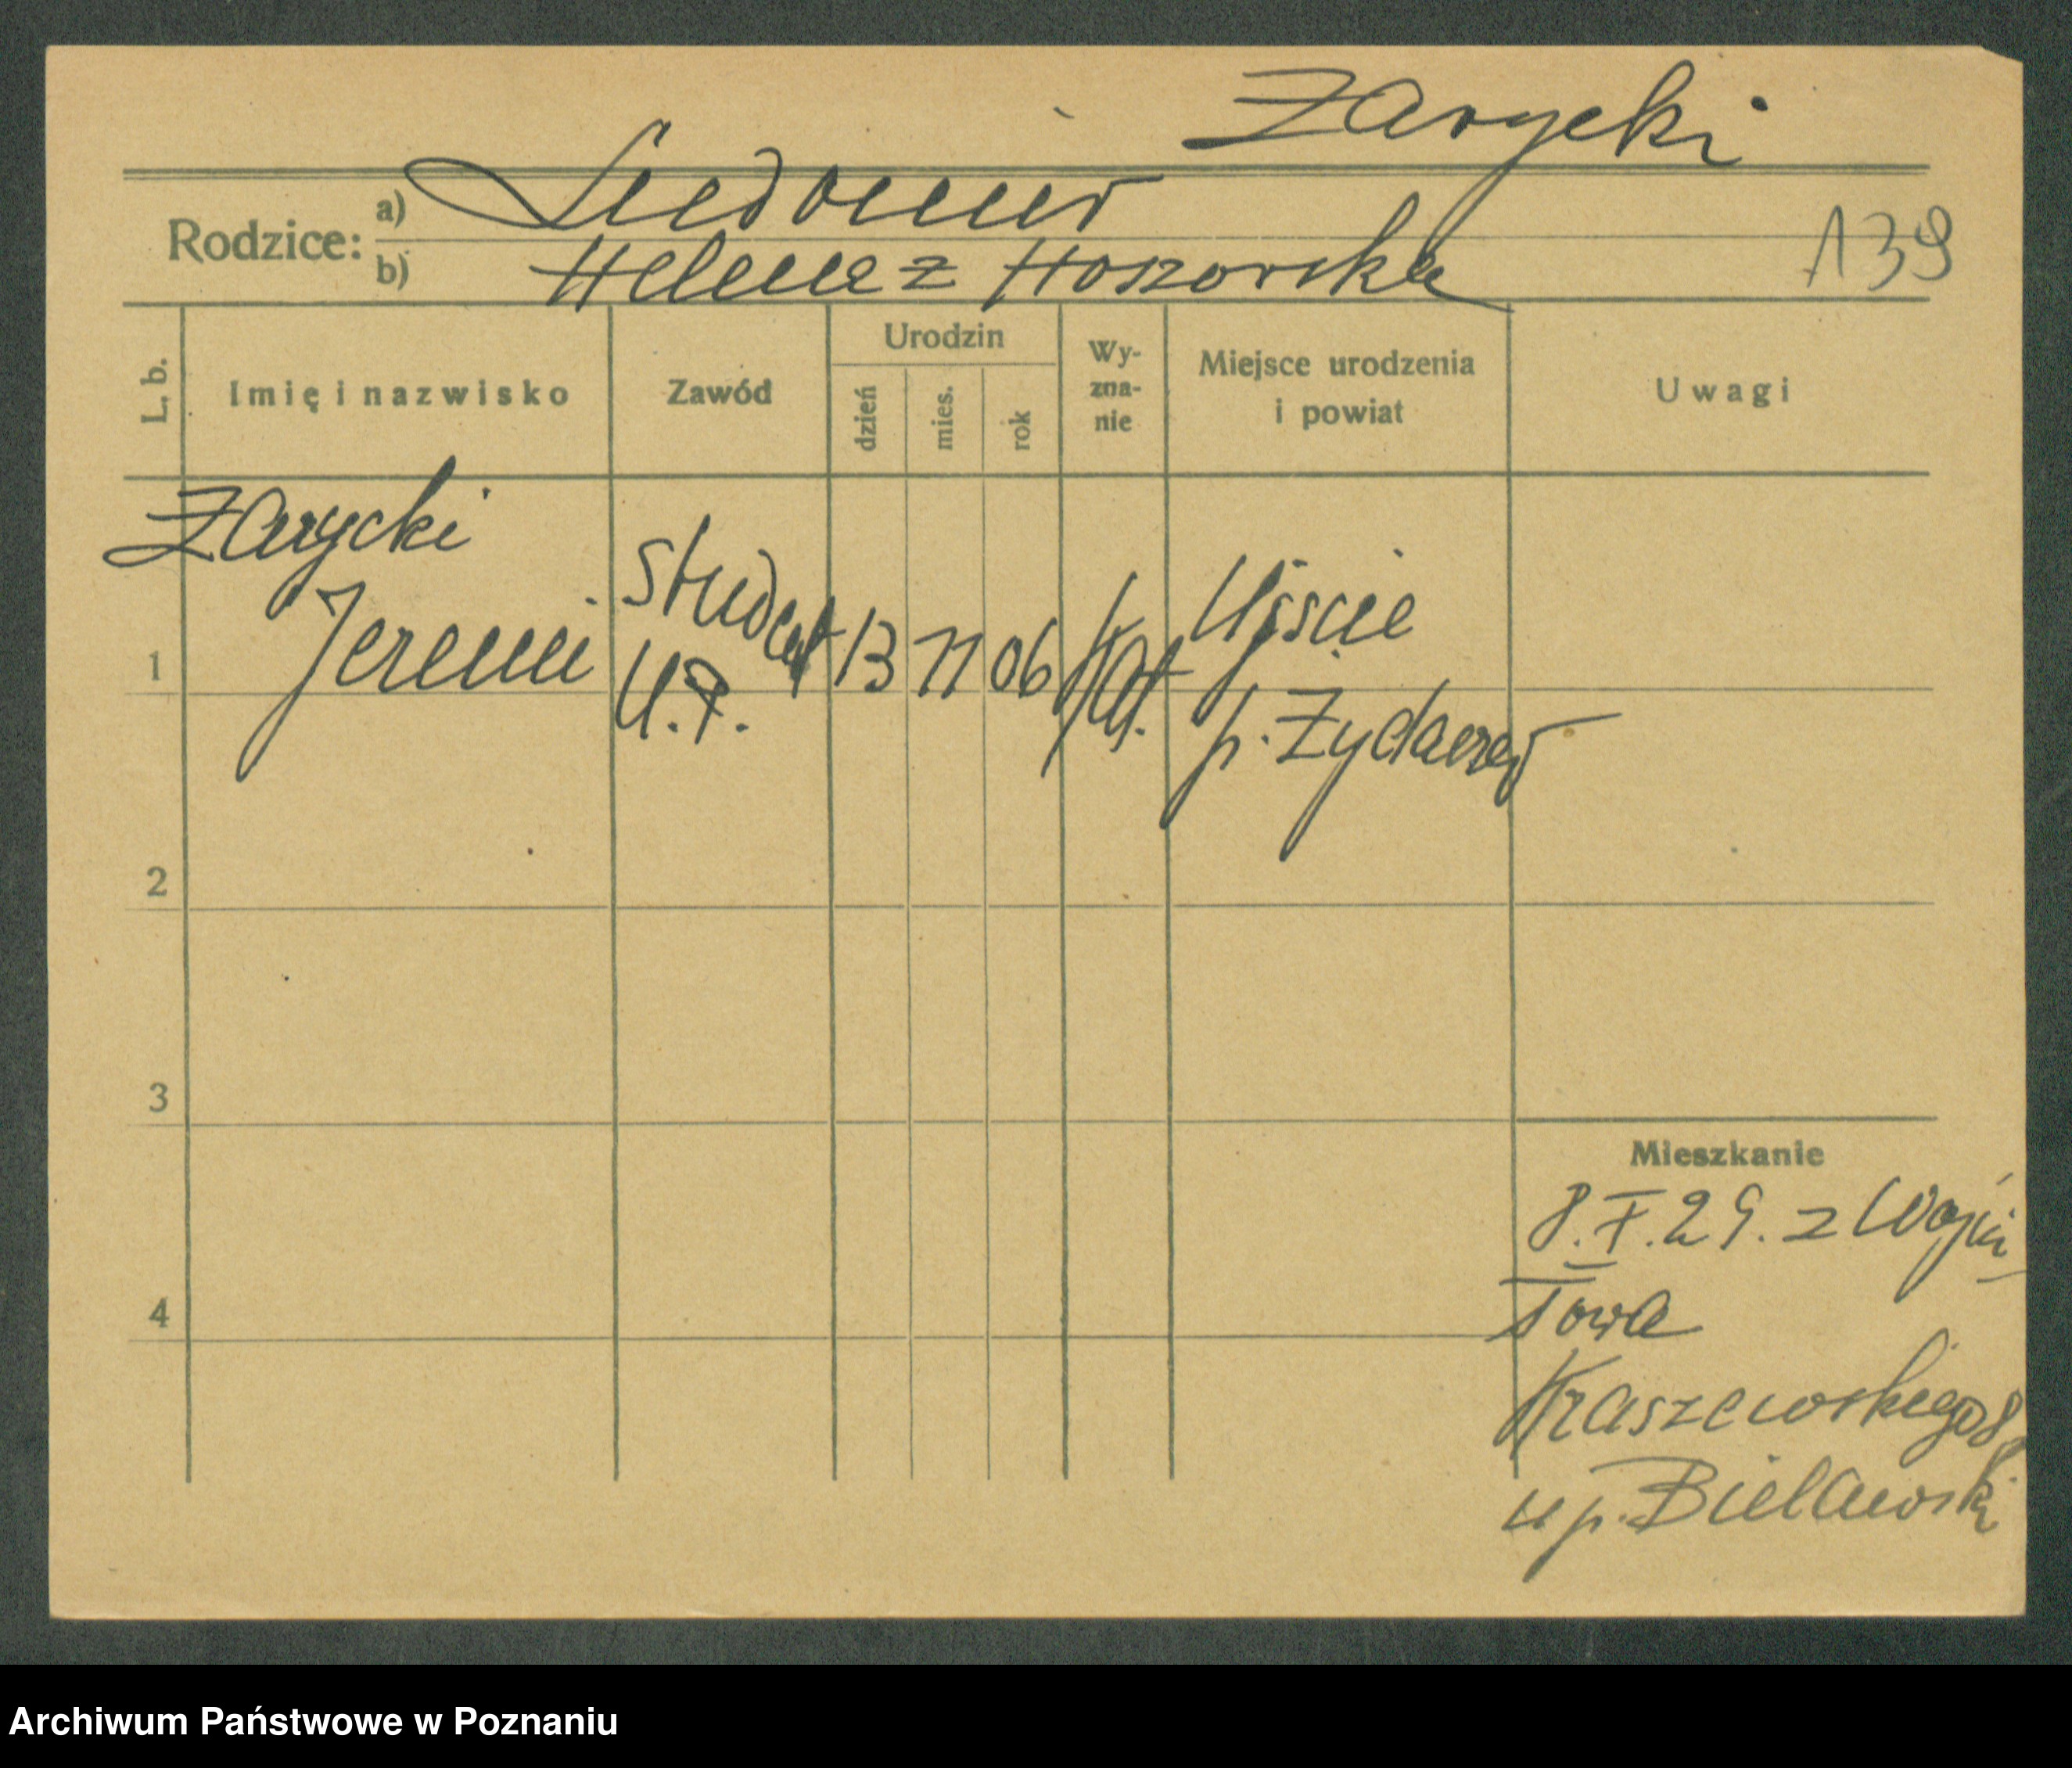 Zarycki
Rodzice: a) Ludomir
b) Helena z Hoszowska
139
L. b. Imię i nazwisko Zawód Urodzin dzień mies. rok Wy-zna-nie Miejsce urodzenia i powiat Uwagi
Zarycki
1 Jeremi student 13 11 06 kat. Ujście
U.P. p. Żydaczów
2
3
Mieszkanie
8.X.29. z Wójtow
4 Towa
Kraszewskiego 8
u p. Bielawski
Archiwum Państwowe w Poznaniu